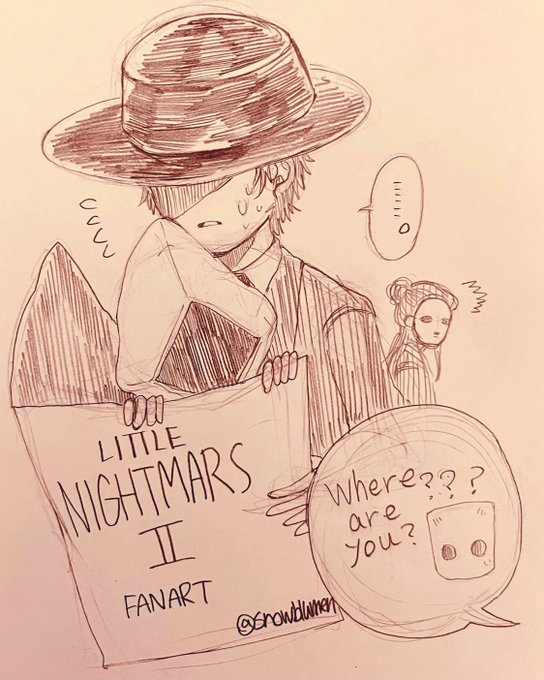 LITTLE
NIGHTMARS
II
FANART
Where???
are
you?